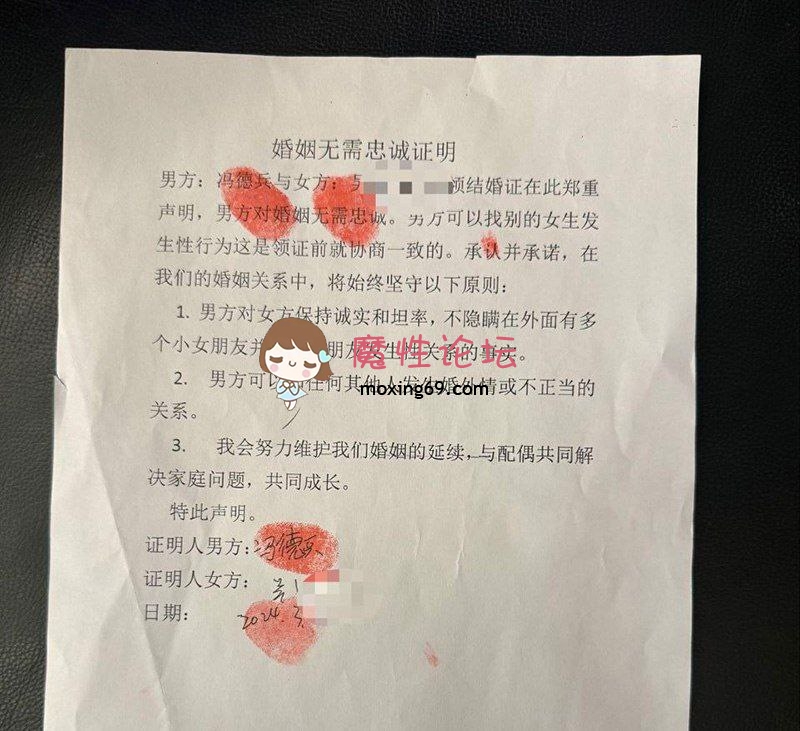 婚姻无需忠诚证明
男方：冯德兵与女方：领结婚证在此郑重
声明，男方对婚姻无需忠诚。男方可以找别的女生发
生性行为这是领证前就协商一致的。承认并承诺，在
我们的婚姻关系中，将始终坚守以下原则：
1. 男方对女方保持诚实和坦率，不隐瞒在外面有多
个小女朋友并朋友发生性关系的事实。
魔性论坛
moxing69.com
2. 男方可以任何其他人发生婚外情或不正当的
关系。
3. 我会努力维护我们婚姻的延续，与配偶共同解
决家庭问题，共同成长。
特此声明。
证明人男方：冯德兵
证明人女方：
日期：2024.3.